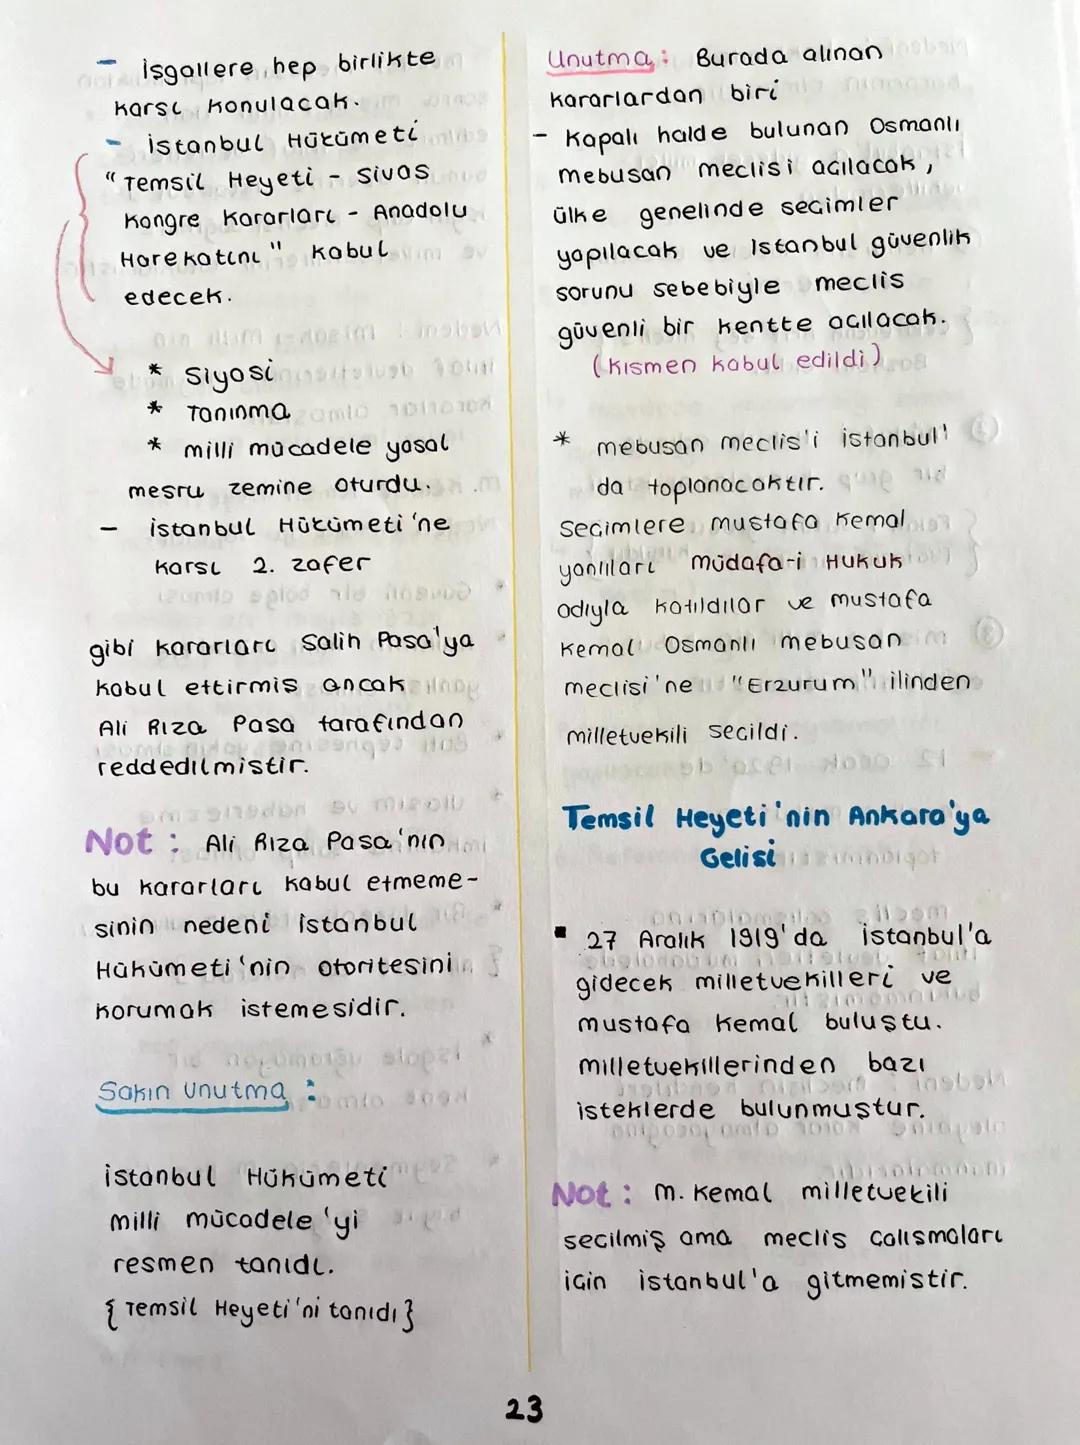 - İşgallere hep birlikte
karsı konulacak.
- İstanbul Hükümeti
"Temsil Heyeti - Sivas
Kongre Kararları - Anadolu
Harekatını" kabul
edecek.
* Siyasi
* Tanınma
* milli mücadele yasal
mesru zemine oturdu.
- istanbul Hükümeti'ne
karsı 2. zafer
gibi kararları Salih Pasa'ya
kabul ettirmis ancak
Ali Rıza Pasa tarafından
reddedilmistir.
Not : Ali Rıza Pasa'nın
bu kararları kabul etmeme-
sinin nedeni istanbul
Hükümeti'nin otoritesini
korumak istemesidir.
Sakın Unutma :
istanbul Hükümeti
milli mücadele'yi
resmen tanıdı.
{Temsil Heyeti'ni tanıdı}
Unutma : Burada alınan
kararlardan biri
- Kapalı halde bulunan Osmanlı
mebusan meclisi acılacak,
ülke genelinde secimler
yapılacak ve Istanbul güvenlik
sorunu sebebiyle meclis
güvenli bir kentte acılacak.
(Kısmen kabul edildi)
* mebusan meclis'i istanbul'
da toplanacaktır.
Secimlere mustafa Kemal
yanlıları müdafa-i Hukuk
adıyla katıldılar ve mustafa
Kemal Osmanlı mebusan
meclisi'ne "Erzurum" ilinden
milletvekili secildi.
Temsil Heyeti'nin Ankara'ya
Gelisi
▪ 27 Aralık 1919'da istanbul'a
gidecek milletvekilleri ve
mustafa Kemal buluştu.
milletvekillerinden bazı
isteklerde bulunmuştur.
Not : M. Kemal milletvekili
secilmiş ama meclis calısmaları
icin istanbul'a gitmemistir.
23